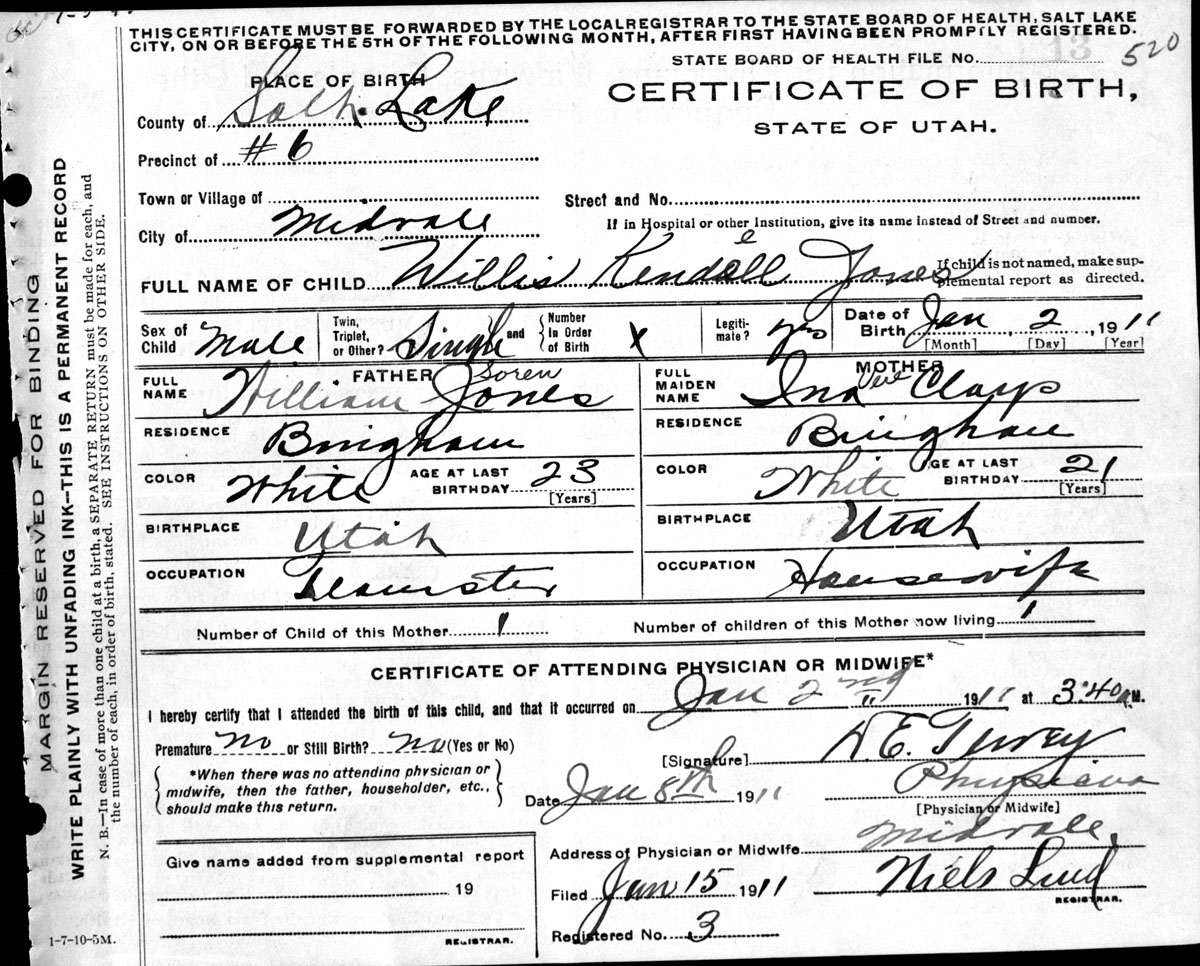 THIS CERTIFICATE MUST BE FORWARDED BY THE LOCAL REGISTRAR TO THE STATE BOARD OF HEALTH, SALT LAKE
CITY, ON OR BEFORE THE 5TH OF THE FOLLOWING MONTH, AFTER FIRST HAVING BEEN PROMPTLY REGISTERED.
STATE BOARD OF HEALTH FILE No. 13 520
PLACE OF BIRTH
CERTIFICATE OF BIRTH,
County of Salt Lake
STATE OF UTAH.
Precinct of #6
Town or Village of
Street and No.
City of Midvale
If in Hospital or other Institution, give its name instead of Street and number.
FULL NAME OF CHILD Willis Kendell Jones
If child is not named, make sup-
plemental report as directed.
Sex of Child Male
Twin, Triplet, or Other? Single and Number In Order of Birth X
Legiti-mate? yes
Date of Birth Jan 2, 1911
[Month] [Day] [Year]
FATHER
FULL NAME William Soren Jones
RESIDENCE Bingham
COLOR White AGE AT LAST BIRTHDAY 23
[Years]
BIRTHPLACE Utah
OCCUPATION Teamster
MOTHER
FULL MAIDEN NAME Ina Clays
RESIDENCE Bingham
COLOR White AGE AT LAST BIRTHDAY 21
[Years]
BIRTHPLACE Utah
OCCUPATION Housewife
Number of Child of this Mother 1
Number of children of this Mother now living 1
CERTIFICATE OF ATTENDING PHYSICIAN OR MIDWIFE*
I hereby certify that I attended the birth of this child, and that it occurred on Jan 2nd 1911 at 3:40 a.M.
Premature no or Still Birth? no (Yes or No)
[Signature] D.E.
*When there was no attending physician or
midwife, then the father, householder, etc.,
should make this return.
Date Jan 8th 1911
Physician
[Physician or Midwife]
Address of Physician or Midwife Midvale
Give name added from supplemental report
19
REGISTRAR.
Filed Jan 15 1911
Niels Lind
REGISTRAR.
Registered No. 3
1-7-10-5M.
MARGIN RESERVED FOR BINDING
WRITE PLAINLY WITH UNFADING INK--THIS IS A PERMANENT RECORD
N. B.—In case of more than one child at a birth, a SEPARATE RETURN must be made for each, and
the number of each, in order of birth, stated. SEE INSTRUCTIONS ON OTHER SIDE.